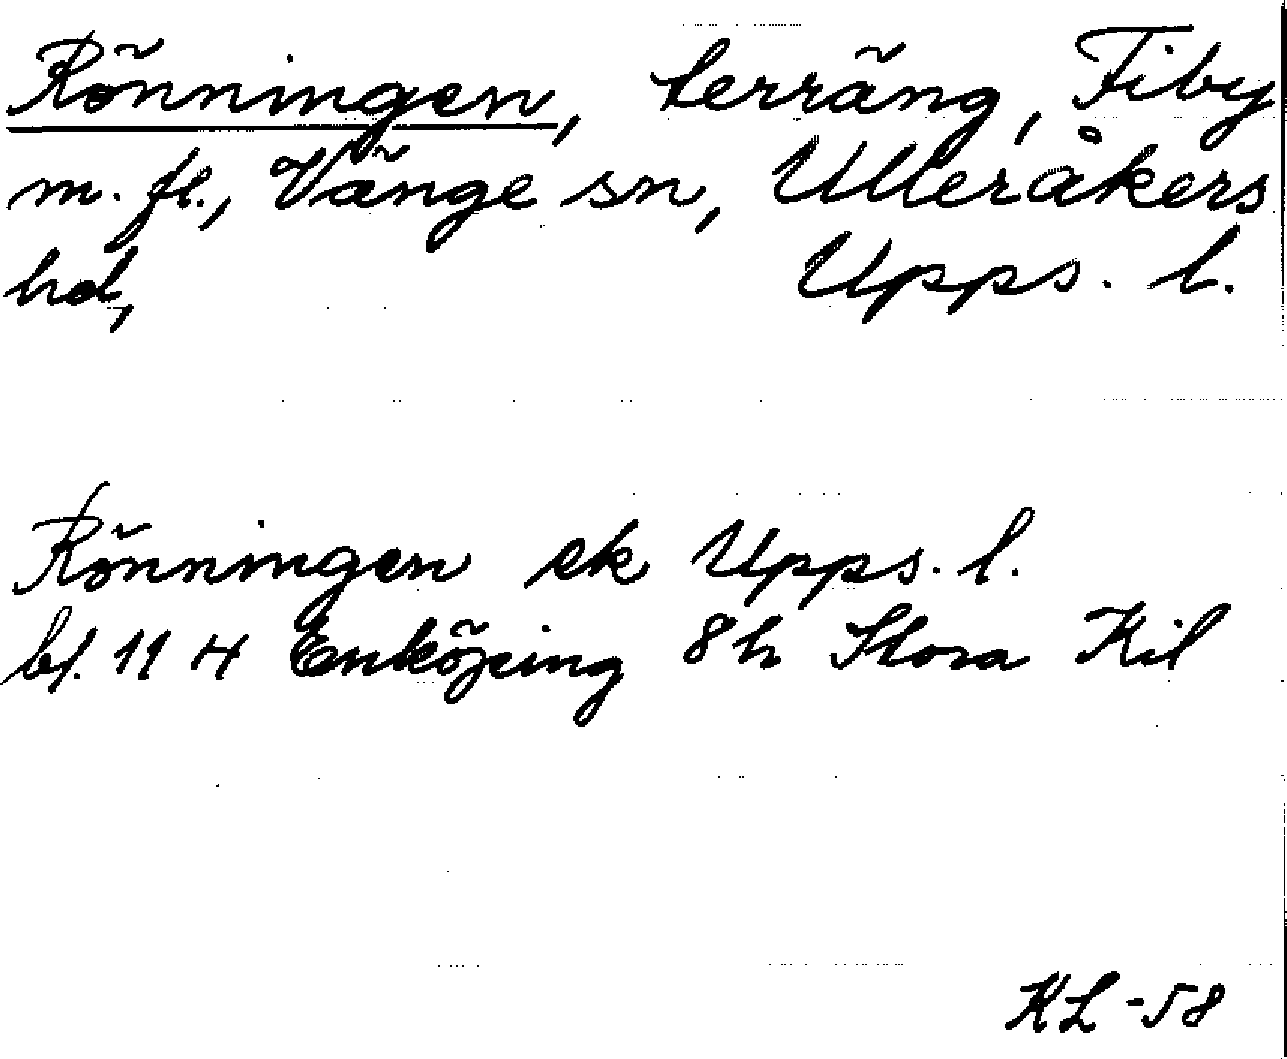 Rönningen, terräng, Fiby
m. fl., Vänge sn, Ulleråkers
hd, Upps. l.
Rönningen ek Upps. l.
bl. 11 4 Enköping 8h Stora Kil
KL -58